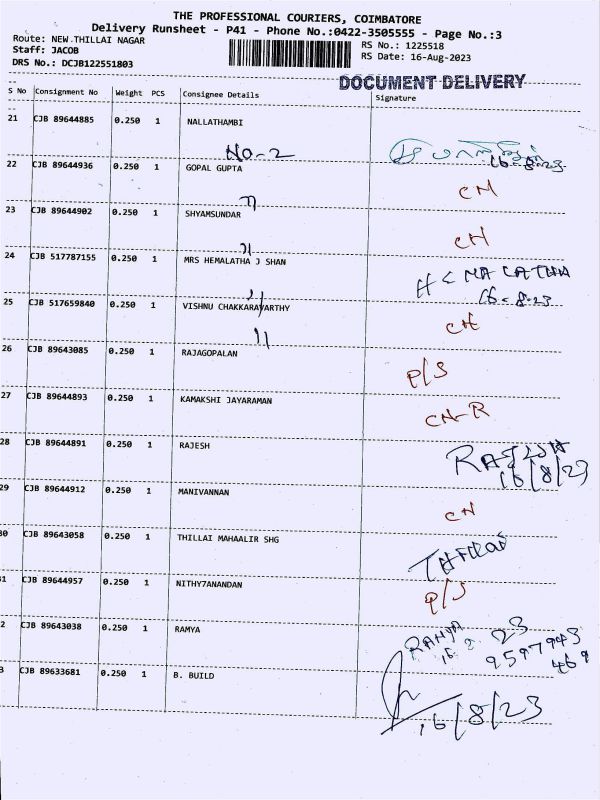 THE PROFESSIONAL COURIERS, COIMBATORE
Delivery Runsheet - P41 - Phone No.:0422-3505555 - Page No.:3
Route: NEW THILLAI NAGAR RS No.: 1225518
Staff: JACOB RS Date: 16-Aug-2023
DRS No.: DCJB122551803
DOCUMENT DELIVERY
S No Consignment No Weight PCS Consignee Details Signature
21 CJB 89644885 0.250 1 NALLATHAMBI
No-2 16-8-23
22 CJB 89644936 0.250 1 GOPAL GUPTA CN
23 CJB 89644902 0.250 1 SHYAMSUNDAR CN
24 CJB 517787155 0.250 1 MRS HEMALATHA J SHAN HEMALATHA
16-8-23
25 CJB 517659840 0.250 1 VISHNU CHAKKARAVARTHY CN
26 CJB 89643085 0.250 1 RAJAGOPALAN P/S
27 CJB 89644893 0.250 1 KAMAKSHI JAYARAMAN CN-R
28 CJB 89644891 0.250 1 RAJESH
16/8/23
29 CJB 89644912 0.250 1 MANIVANNAN CN
30 CJB 89643058 0.250 1 THILLAI MAHAALIR SHG THILLAI
31 CJB 89644957 0.250 1 NITHY7ANANDAN P/S
2 CJB 89643038 0.250 1 RAMYA RAMYA
16 8 23
9597943
469
3 CJB 89633681 0.250 1 B. BUILD
16/8/23